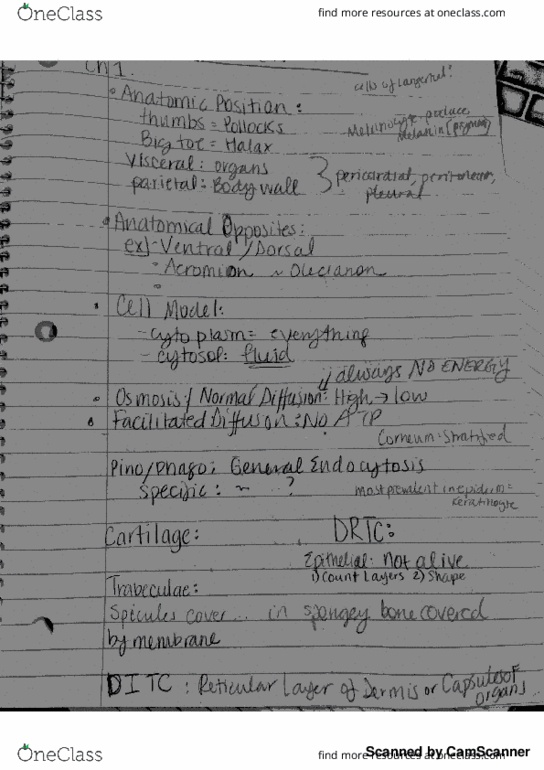 OneClass
find more resources at oneclass.com
Ch 1.
cells of Langerhel:
Anatomic Position:
thumbs = Pollocks
Melanocyte-produce
Melanin (pigment)
Big toe = Halax
Visceral: organs
parietal: Body wall
pericardial, peritoneum,
pleural
Anatomical Opposites:
ex)-Ventral / Dorsal
- Acromion ~ Olecranon
Cell Model:
- cytoplasm = everything
- cytosol: fluid
always NO ENERGY
Osmosis / Normal Diffusion: High → low
Facilitated Diffusion: NO ATP
Corneum: Stratified
Pino/Phago: General Endocytosis
Specific: ~ ?
most prevalent in epiderm =
keratinocyte
Cartilage:
DRTC:
Epithelial: not alive
1) Count Layers 2) Shape
Trabeculae:
Spicules cover... in spongey bone covered
by membrane
DITC: Reticular Layer of Dermis or Capsules of
organs
OneClass
find more resources at oneclass.com
Scanned by CamScanner